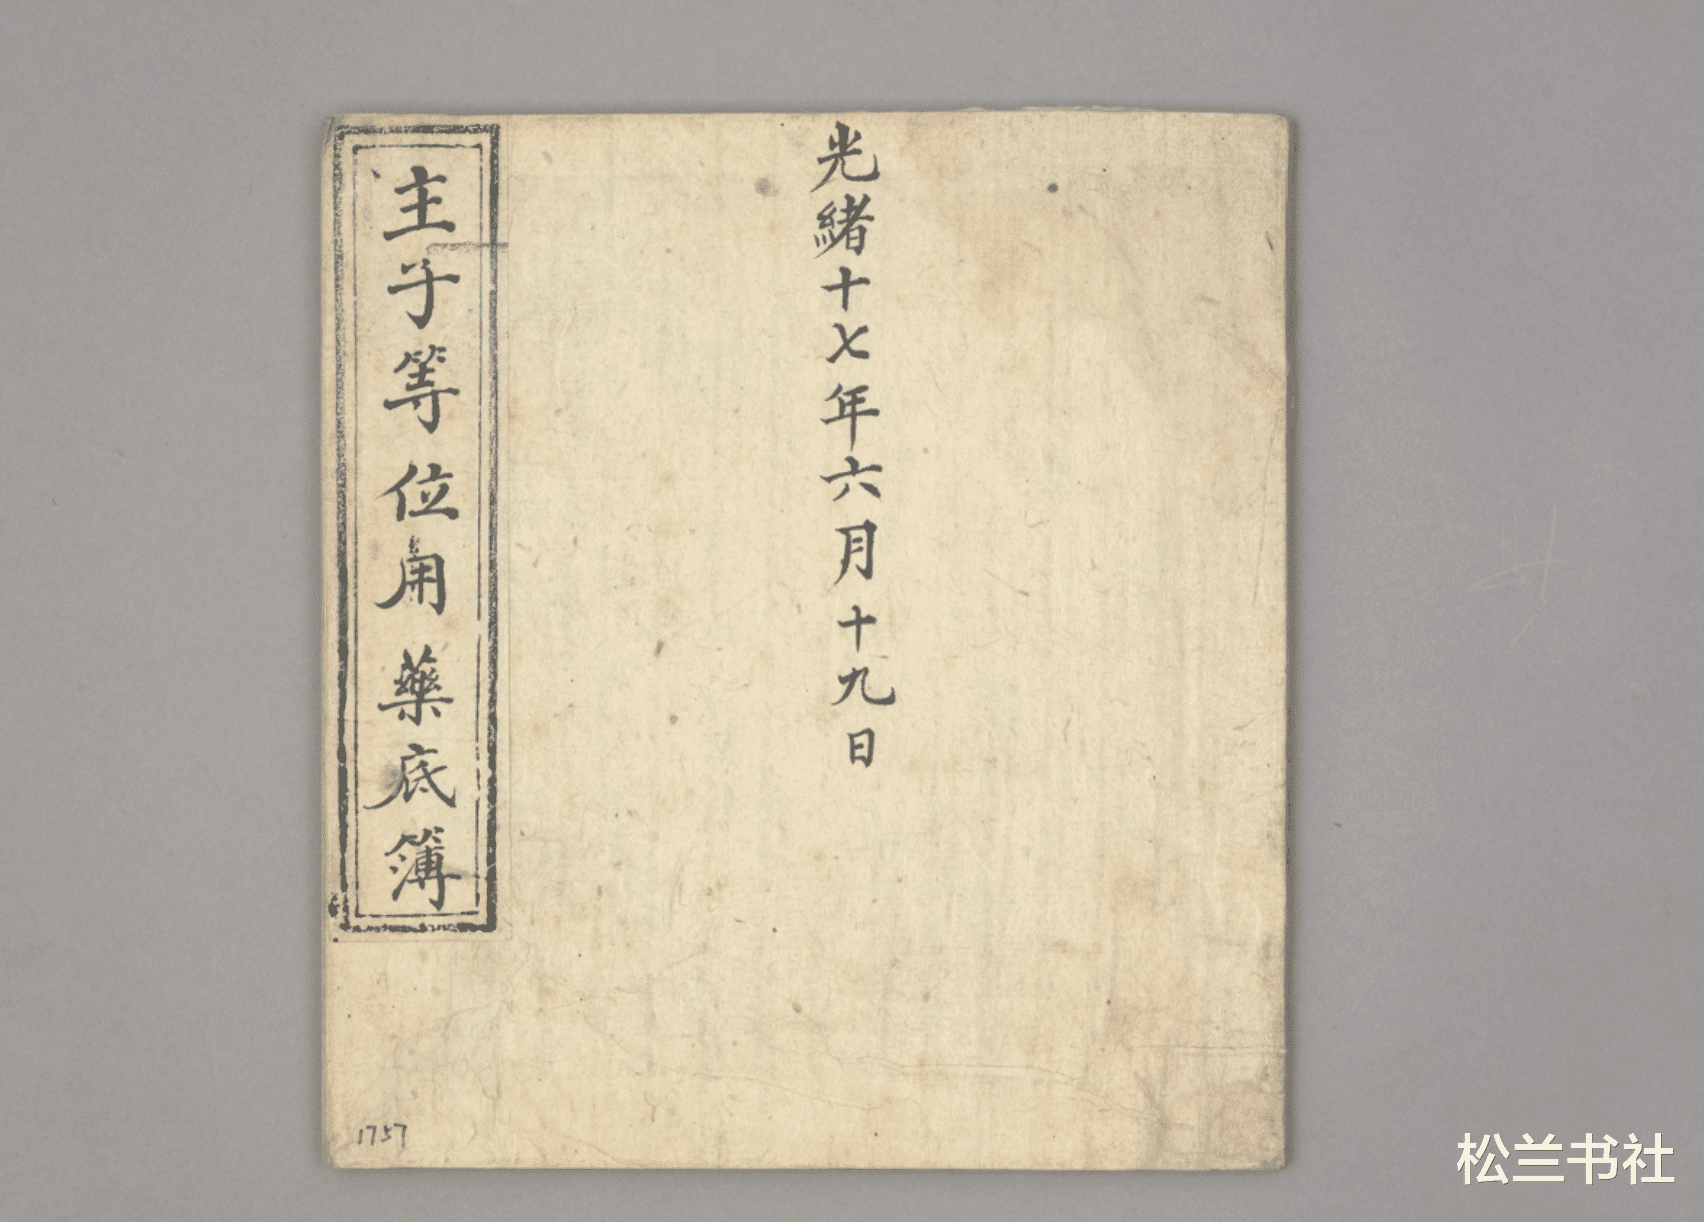 光緒十七年六月十九日
主子等位用藥底簿
1757
松兰书社